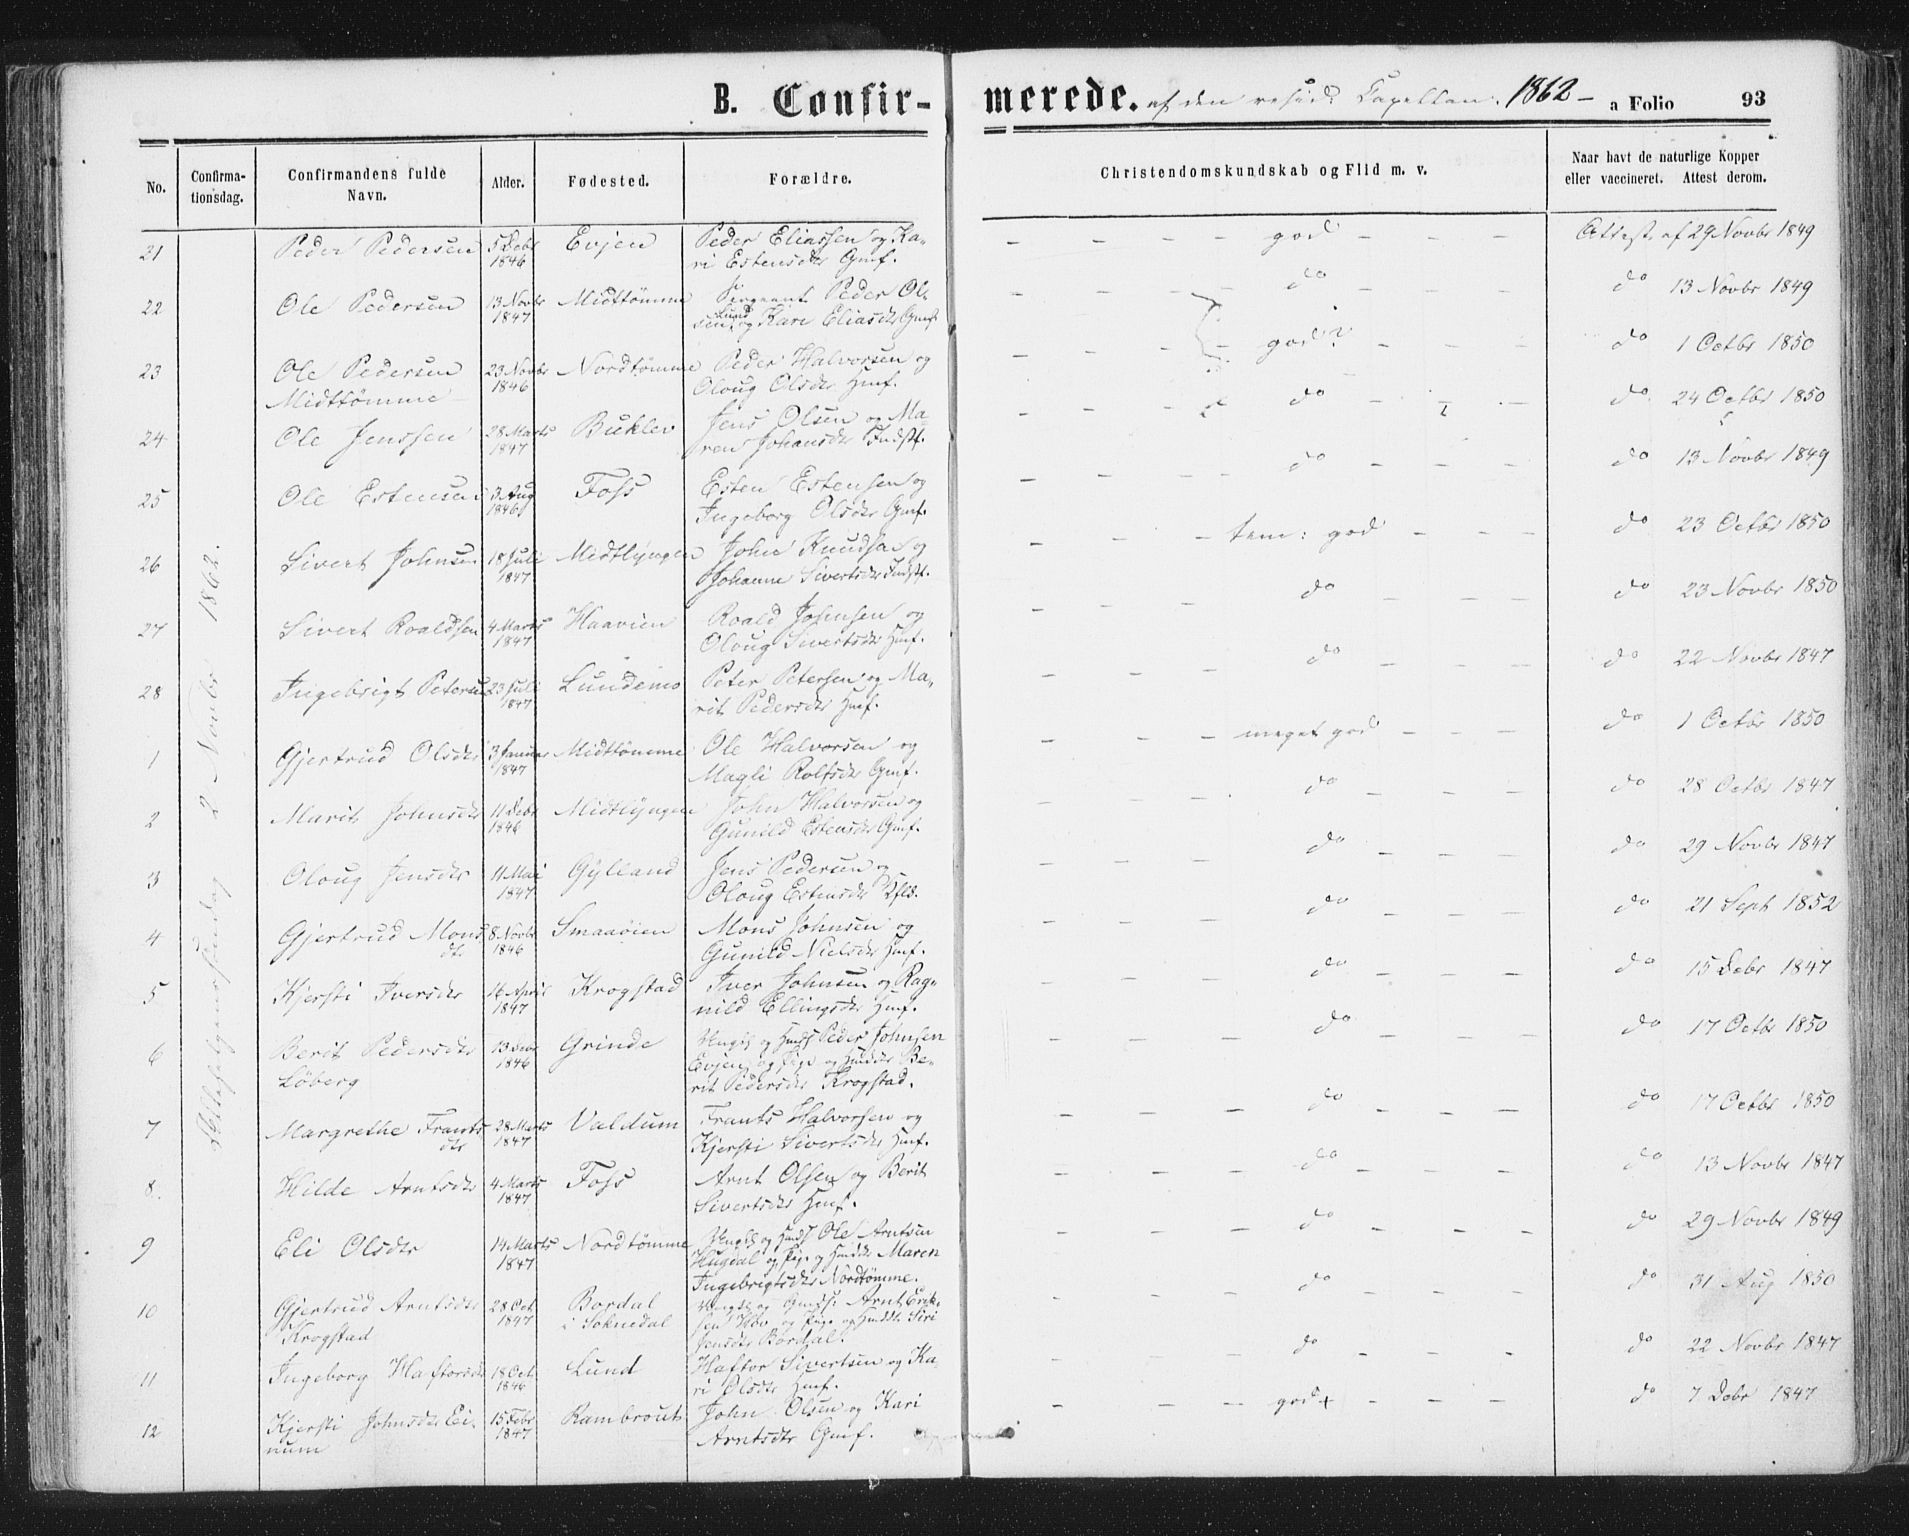 B. Confir-merede. af den resid: Capellan. 1862 - a Folio 93
No. Confirma-tionsdag. Confirmandens fulde Navn. Alder. Fødested. Forældre. Christendomskundskab og Flid m. v. Naar havt de naturlige Kopper eller vaccineret. Attest derom.
Allehelgenssøndag 2 Novbr 1862.
21 Peder Pedersen 5 Debr 1846 Evjen Peder Eliassen og Ka- - - - god - - - Attest af 29 Novbr 1849
ri Estensdtr Gmf.
22 Ole Pedersen 13 Novbr 1847 Midttømme Sergeant Peder Ol- - - - do - - - do 13 Novbr 1849
sen Lund og Kari Eliasdtr Gmf.
23 Ole Pedersen 23 Novbr 1846 Nordtømme Peder Halvorsen og - - - god? - - - do 1 Octbr 1850
Midttømme Oloug Olsdtr Hmf.
24 Ole Jenssen 28 Marts 1847 Buklev Jens Olsen og Ma- - - - do - - - do 24 Octbr 1850
ren Johansdtr Indstf.
25 Ole Estensen 3 Aug 1846 Foss Esten Estensen og - - - do - - - do 13 Novbr 1849
Ingeborg Olsdtr Gmf.
26 Sivert Johnsen 18 Juli 1847 Midtlyngen John Knudsen og - - - tem: god - - - do 23 Octbr 1850
Johanne Sivertsdtr Indstf.
27 Sivert Roaldsen 4 Marts 1847 Haavien Roald Johnsen og - - - do - - - do 23 Novbr 1850
Oloug Sivertsdtr Hmf.
28 Ingebrigt Petersen 23 Juli 1847 Lundemo Peter Petersen og Ma- - - - do - - - do 22 Novbr 1847
rit Pedersdtr Hmf.
1 Gjertrud Olsdtr 3 Januar 1847 Midttømme Ole Halvorsen og - - - meget god - - - do 1 Octbr 1850
Magli Rolfsdtr Gmf.
2 Marit Johnsdtr 11 Debr 1846 Midtlyngen John Halvorsen og - - - do - - - do 28 Octbr 1847
Gunild Estensdtr Gmf.
3 Oloug Jensdtr 11 Mai 1847 Gylland Jens Pedersen og - - - do - - - do 29 Novbr 1847
Oloug Estensdtr
4 Gjertrud Mons 8 Novbr 1846 Smaaøien Mons Johnsen og - - - do - - - do 21 Sept 1852
dtr Gunild Nielsdtr Hmf.
5 Kjersti Iversdtr 16 April 1847 Krogstad Iver Johnsen og Rag- - - - do - - - do 15 Debr 1847
nild Ellingsdtr Hmf.
6 Berit Pedersdtr 13 Debr 1846 Grinde Ungk og Hmds Peder Johnsen - - - do - - - do 17 Octbr 1850
Løberg Evjen og Pige og Hmddtr Be-
rit Pedersdtr Krogstad.
7 Margrethe Frants 28 Marts 1847 Valdum Frants Halvorsen og - - - do - - - do 17 Octbr 1850
dtr Kjersti Sivertsdtr Hmf.
8. Hilde Arntsdtr 4 Marts 1847 Foss Arnt Olsen og Berit - - - do - - - do 13 Novbr 1847
Sivertsdtr Hmf.
9 Eli Olsdtr 14 Marts 1847 Nordtømme Ungk og Hmds Ole Arntsen - - - do - - - do 29 Novbr 1849
Hugdal og Pige og Hmddtr Maren
Ingebrigtsdtr Nordtømme.
10 Gjertrud Arntsdtr 28 Oct. 1847 Bordal Ungk og Gmds: Arnt Erik- - - - do - - - do 31 Aug 1850
Krogstad i Soknedal sen Hov og Pige og Hmddtr Siri
Jensdtr Bordal.
11 Ingeborg Haftorsdtr 18 Oct. 1846 Lund Haftor Sivertsen og Ka- - - - do - - - do 22 Novbr 1847
ri Olsdtr Hmf.
12 Kjersti Johnsdtr Ei- 15 Febr 1847 Rambrout John Olsen og Kari - - - god + - - - do 7 Debr 1847
num Arntsdtr Gmf.